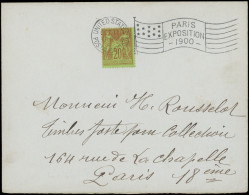 PARIS
EXPOSITION
1900
Monsieur H. Rousselot
Timbres poste pour Collection
164 rue de la Chapelle
Paris 18eme